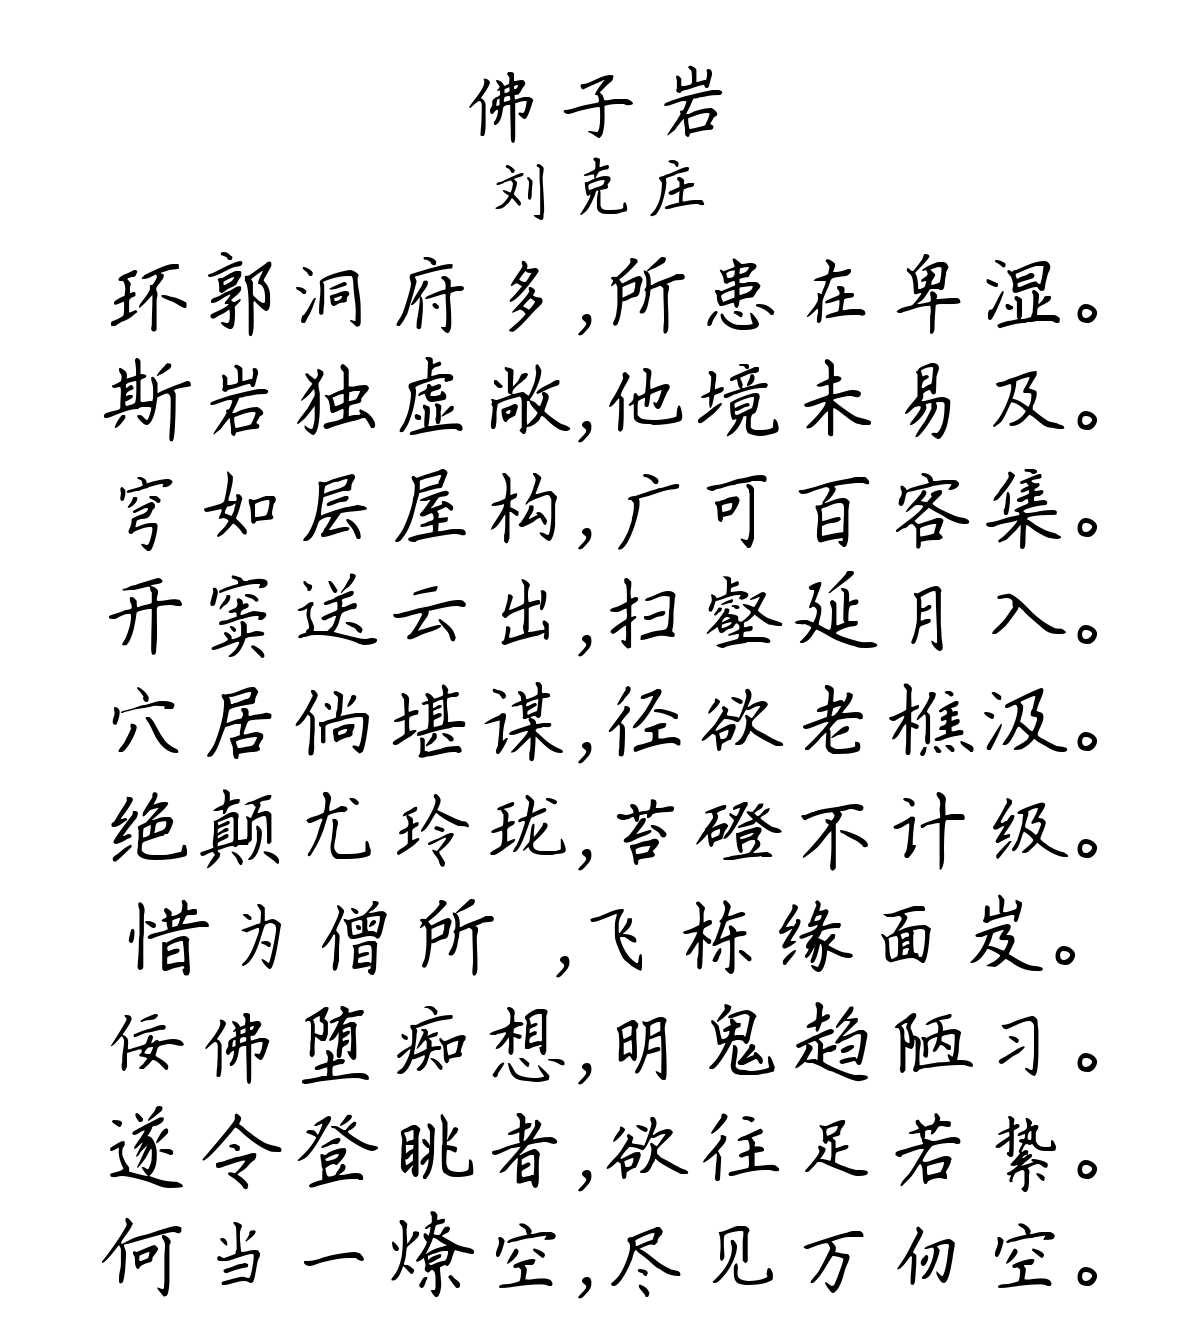 佛子岩
刘克庄
环郭洞府多,所患在卑湿。
斯岩独虚敞,他境未易及。
穹如层屋构,广可百客集。
开窦送云出,扫壑延月入。
穴居倘堪谋,径欲老樵汲。
绝颠尤玲珑,苔磴不计级。
惜为僧所 ,飞栋缘面岌。
佞佛堕痴想,明鬼趋陋习。
遂令登眺者,欲往足若絷。
何当一燎空,尽见万仞空。